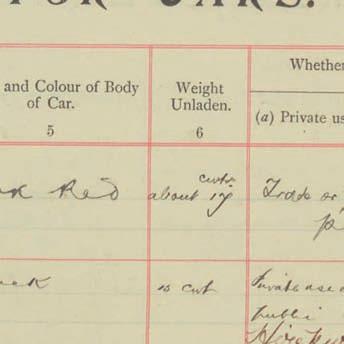 FOR CARS.
and Colour of Body
of Car.
5
Weight
Unladen.
6
Whether
(a) Private us
Red
cwts.
about 17
Trade or
p
10 cwt
Private use
public